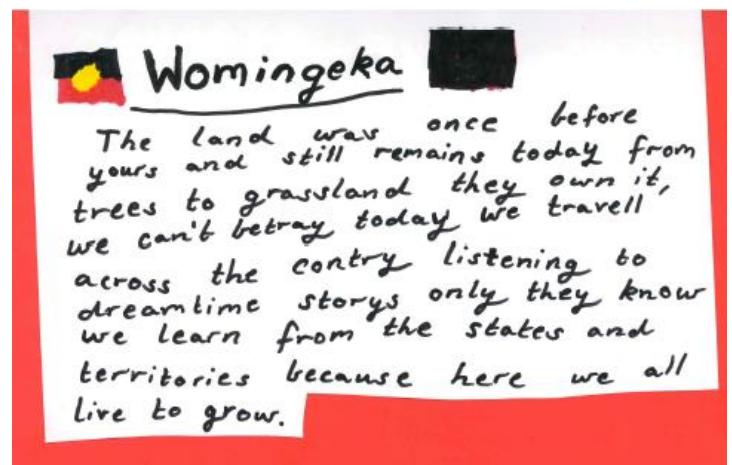 Womingeka
The land was once before
yours and still remains today from
trees to grassland they own it,
we can't betray today we travell
across the contry listening to
dreamtime storys only they know
we learn from the states and
territories because here we all
live to grow.